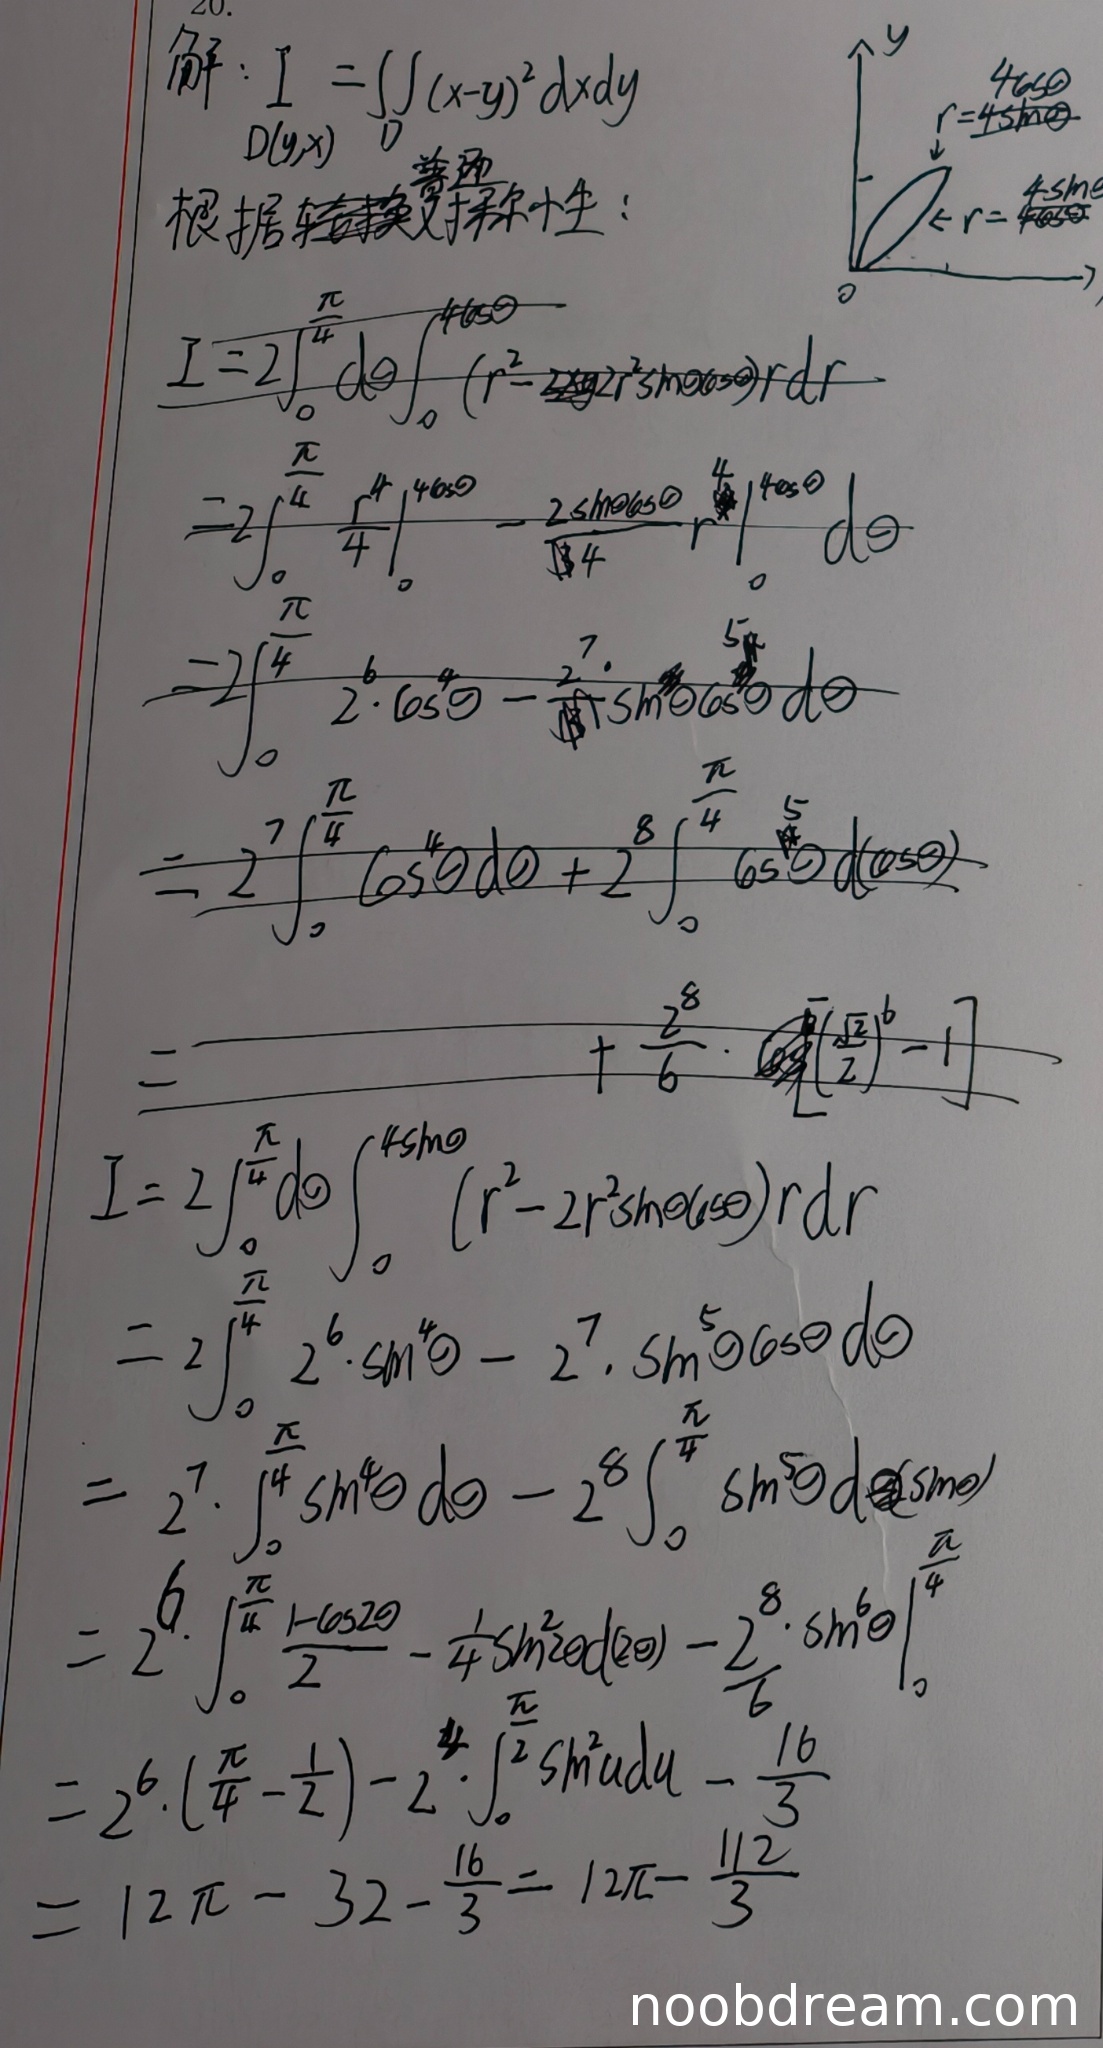 20.
解: I = ∬ (x-y)² dxdy
D(y,x) D
y
4cosθ
r=4sinθ
4sinθ
← r= 4cosθ
0
普通
根据对称性:
I = 2∫₀^(π/4) dθ ∫₀^(4cosθ) (r² - 2r²sinθcosθ) r dr
= 2∫₀^(π/4) r⁴/4 |₀^(4cosθ) - (2sinθcosθ)/4 r⁴ |₀^(4cosθ) dθ
= 2∫₀^(π/4) 2⁶·cos⁴θ - 2⁷·sinθcos⁵θ dθ
= 2⁷∫₀^(π/4) cos⁴θdθ + 2⁸∫₀^(π/4) cos⁵θ d(cosθ)
= + 2⁸/6 · [(√2/2)⁶ - 1]
I = 2∫₀^(π/4) dθ ∫₀^(4sinθ) (r² - 2r²sinθcosθ) r dr
= 2∫₀^(π/4) 2⁶·sin⁴θ - 2⁷·sin⁵θcosθ dθ
= 2⁷·∫₀^(π/4) sin⁴θ dθ - 2⁸∫₀^(π/4) sin⁵θ d(sinθ)
= 2⁶·∫₀^(π/4) (1-cos2θ)/2 - 1/4 sin²2θ d(2θ) - 2⁸/6·sin⁶θ |₀^(π/4)
= 2⁶·(π/4 - 1/2) - 2⁴·∫₀^(π/2) sin²u du - 16/3
= 12π - 32 - 16/3 = 12π - 112/3
noobdream.com